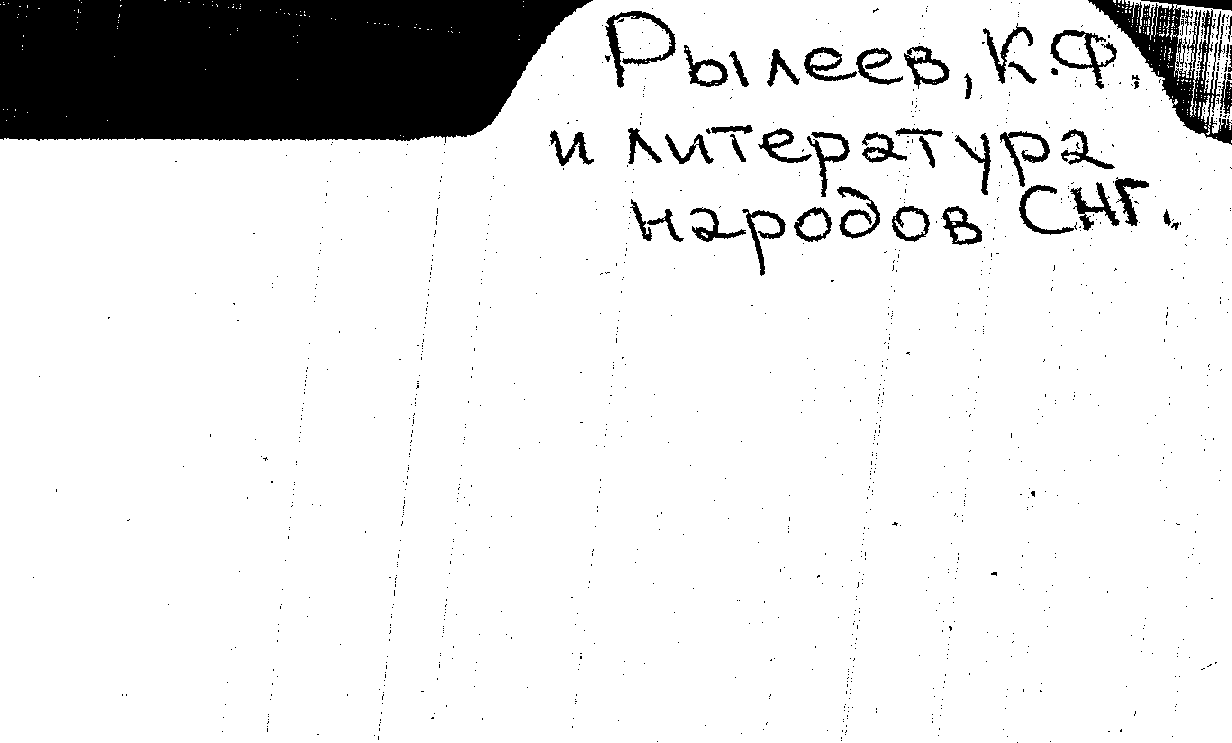 Рылеев, К.Ф.
и литература
народов СНГ.